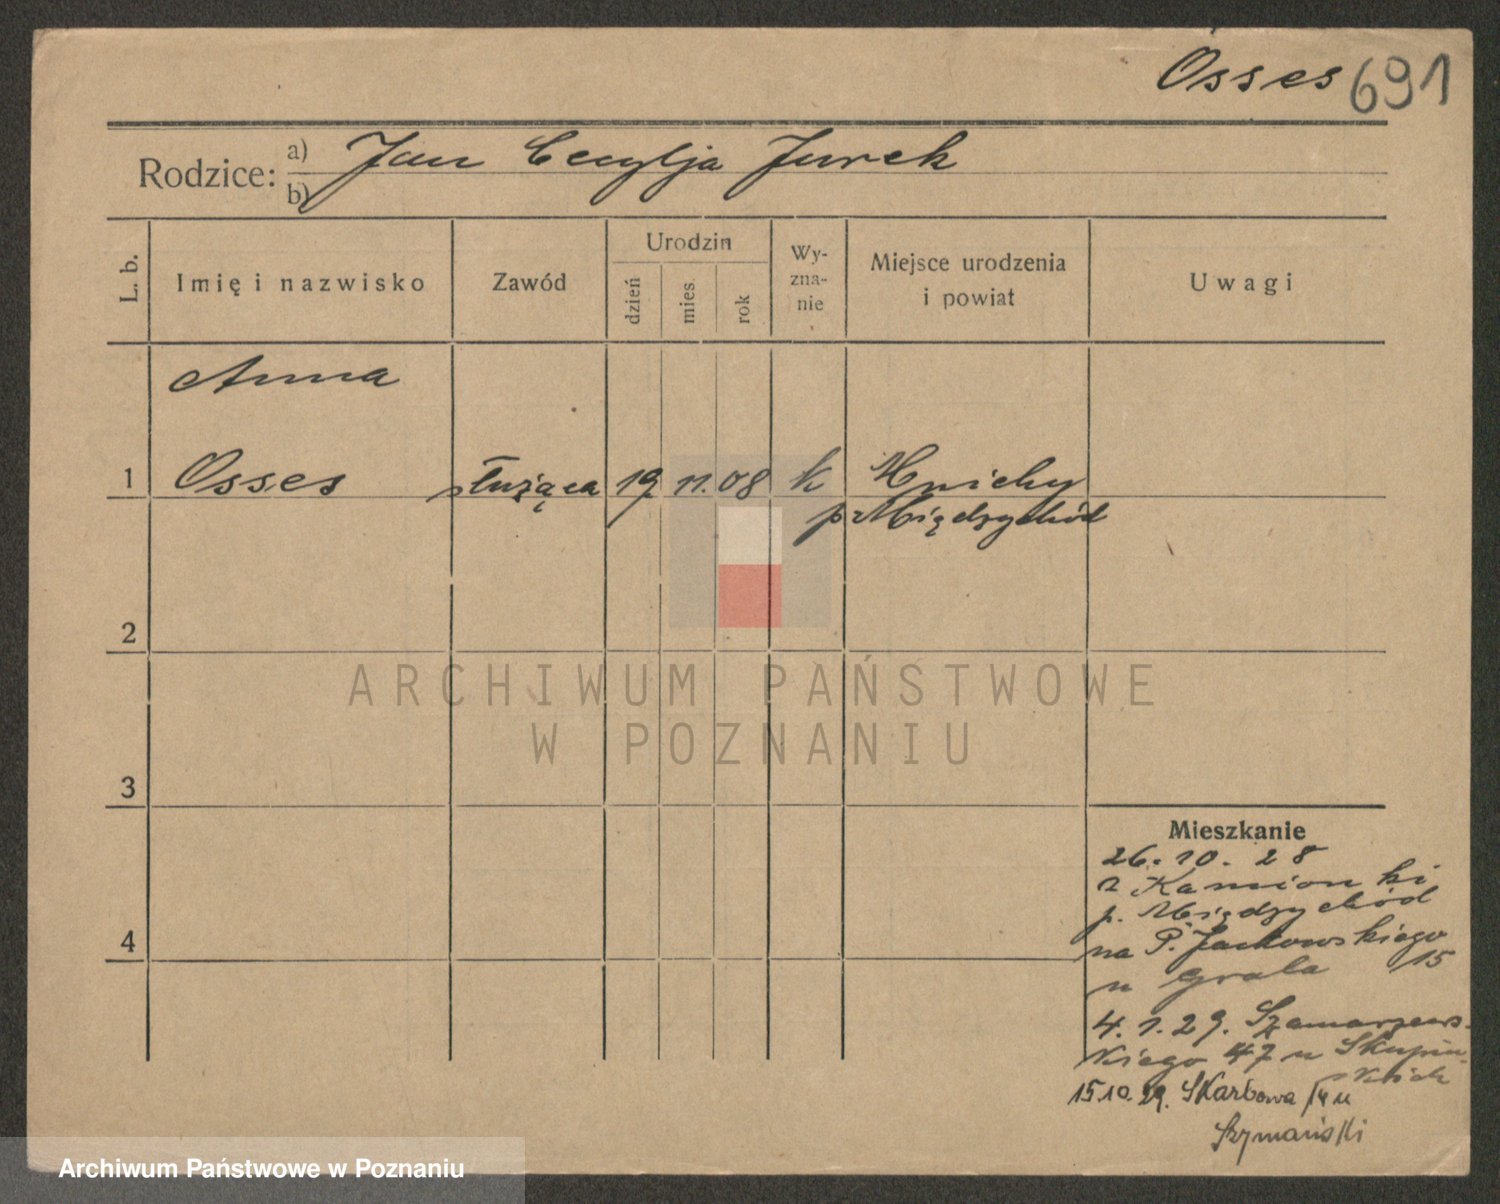 Osses 691
Rodzice: a) Jan Cecylja Jurek
b)
L. b.
Imię i nazwisko
Zawód
Urodzin
dzień
mies.
rok
Wy-
zna-
nie
Miejsce urodzenia
i powiat
Uwagi
Anna
1 Osses służąca 19. 11. 08 k Mnichy
p. Międzychód
2
3
4
Mieszkanie
26. 10. 28
z Kamionki
p. Międzychód
na P. Jackowskiego
15
u Grala
4. 1. 29. Szamarzews-
kiego 47 u Skupiń-
skich
15.10.29. Skarbowa u
Szymański
ARCHIWUM PAŃSTWOWE
W POZNANIU
Archiwum Państwowe w Poznaniu